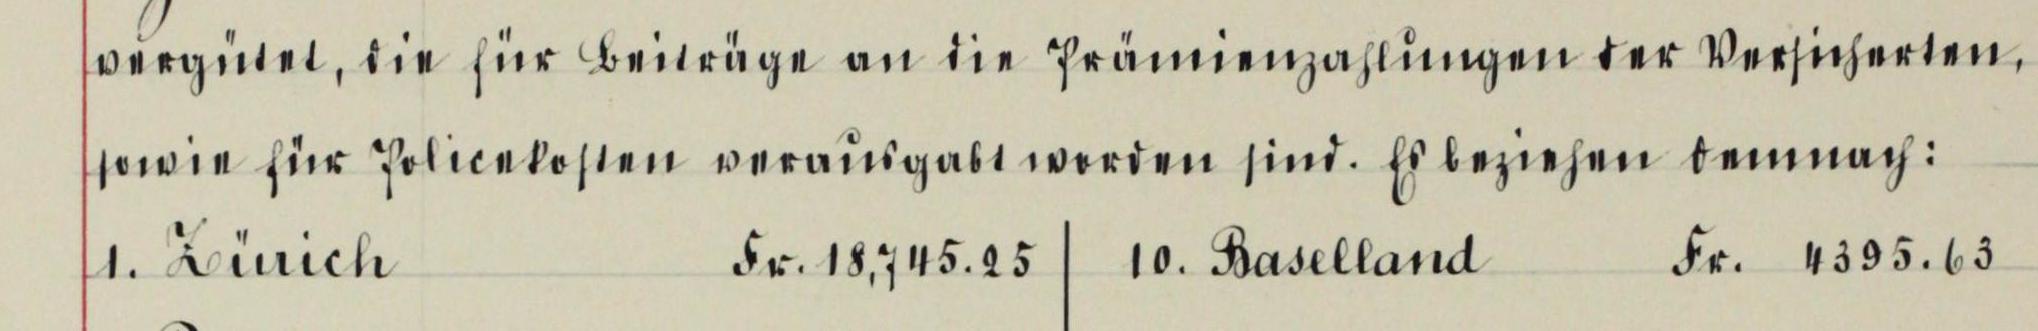 vergütet, die für Beiträge an die Prämienzahlungen der Versicherten,
sowie für Policekosten verausgabt worden sind. Es beziehen demnach:
1. Zürich Fr. 18,745.25 | 10. Baselland Fr. 4395.63